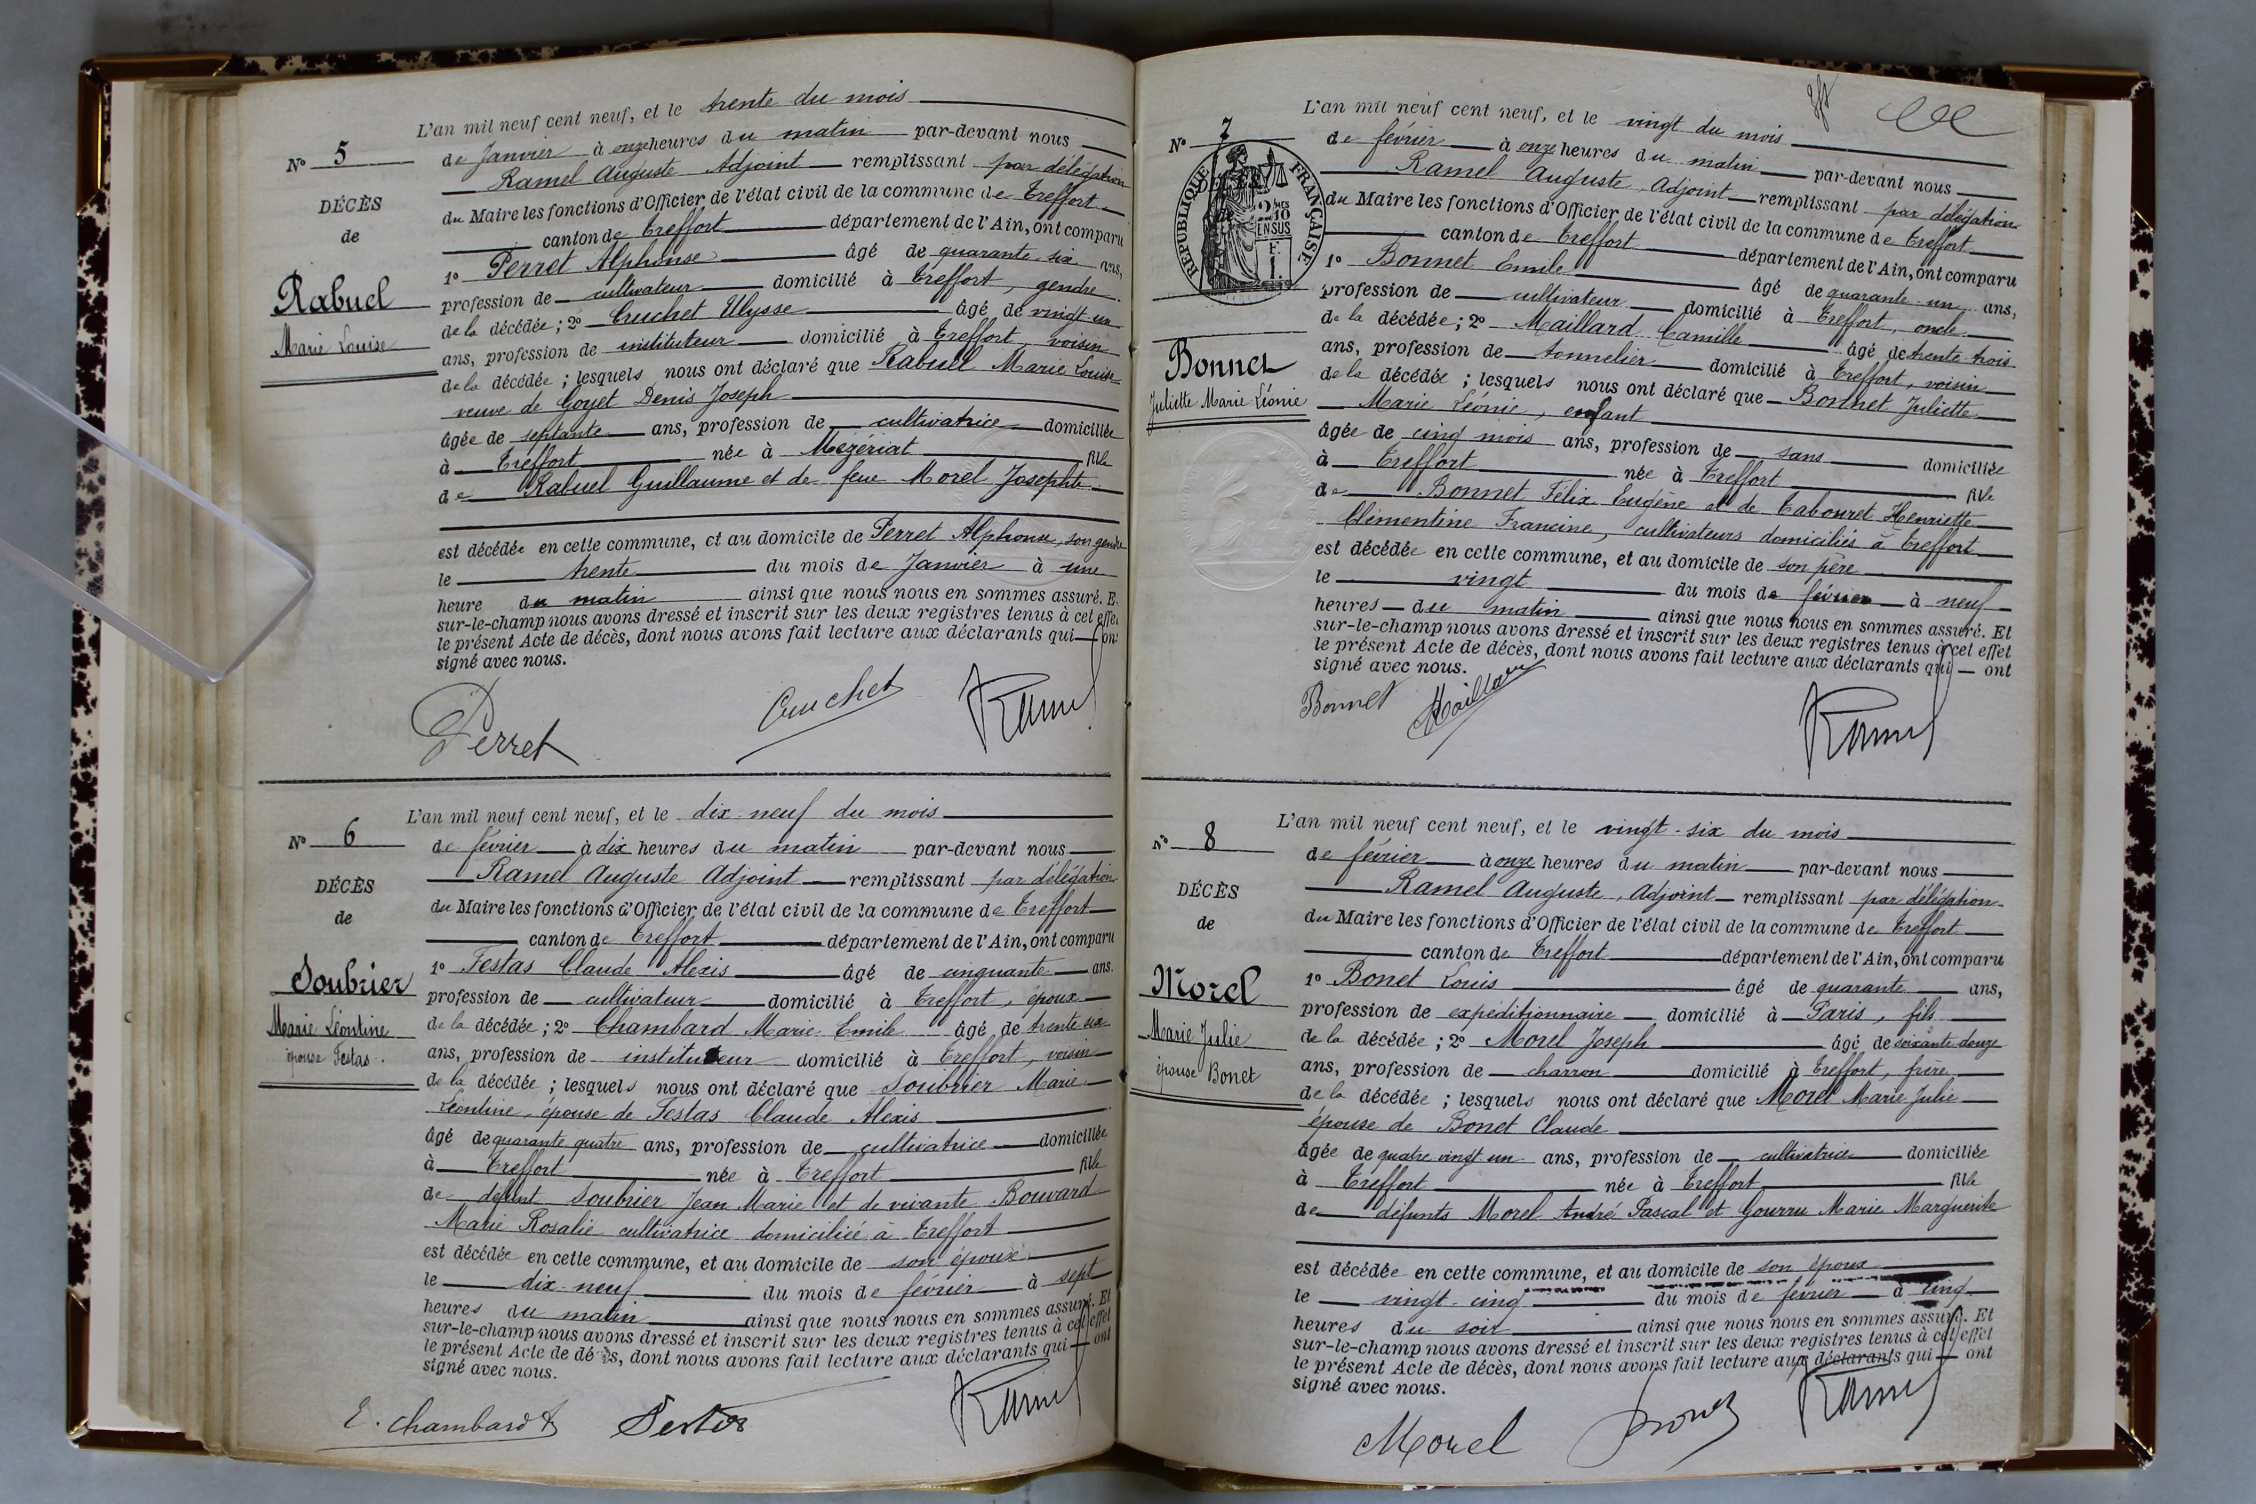 L'an mil neuf cent neuf, et le trente du mois
N° 5
de Janvier à onze heures du matin par-devant nous
Ramel Auguste Adjoint remplissant par délégation
DÉCÈS
du Maire les fonctions d'Officier de l'état civil de la commune de Treffort
de
canton de Treffort département de l'Ain, ont comparu
1° Perret Alphonse âgé de quarante six ans,
Rabuel
profession de cultivateur domicilié à Treffort, gendre
Marie Louise
de la décédée; 2° Cruchet Ulysse âgé de vingt un
ans, profession de instituteur domicilié à Treffort voisin
de la décédée; lesquels nous ont déclaré que Rabuel Marie Louise
veuve de Goyet Denis Joseph
âgée de septante ans, profession de cultivatrice domiciliée
à Treffort née à Mezériat fille
de Rabuel Guillaume et de feue Morel Josephte
est décédée en cette commune, et au domicile de Perret Alphonse, son gendre
le trente du mois de Janvier à une
heure du matin ainsi que nous nous en sommes assuré. E
sur-le-champ nous avons dressé et inscrit sur les deux registres tenus à cet effet
le présent Acte de décès, dont nous avons fait lecture aux déclarants qui ont
signé avec nous.
Perret Cruchet Ramel
L'an mil neuf cent neuf, et le dix neuf du mois
N° 6
de février à dix heures du matin par-devant nous
Ramel Auguste Adjoint remplissant par délégation
DÉCÈS
du Maire les fonctions d'Officier de l'état civil de la commune de Treffort
de
canton de Treffort département de l'Ain, ont comparu
Soubrier
1° Festas Claude Alexis âgé de cinquante ans.
profession de cultivateur domicilié à Treffort, époux
Marie Léontine
de la décédée; 2° Chambard Marie Emile âgé de trente six
épouse Festas.
ans, profession de instituteur domicilié à Treffort, voisin
de la décédée; lesquels nous ont déclaré que Soubrier Marie
Léontine, épouse de Festas Claude Alexis
âgé de quarante quatre ans, profession de cultivatrice domiciliée
à Treffort née à Treffort fille
de défunt Soubrier Jean Marie et de vivante Bouvard
Marie Rosalie cultivatrice domiciliée à Treffort
est décédée en cette commune, et au domicile de son époux
le dix-neuf du mois de février à sept
heures du matin ainsi que nous nous en sommes assuré. Et
sur-le-champ nous avons dressé et inscrit sur les deux registres tenus à cet effet
le présent Acte de décès, dont nous avons fait lecture aux déclarants qui ont
signé avec nous.
E. Chambard Festas Ramel
L'an mil neuf cent neuf, et le vingt du mois
N° 7
de février à onze heures du matin par-devant nous
Ramel Auguste, Adjoint remplissant par délégation
du Maire les fonctions d'Officier de l'état civil de la commune de Treffort
canton de Treffort département de l'Ain, ont comparu
RÉPUBLIQUE FRANÇAISE
1° Bonnet Emile âgé de quarante-un ans,
profession de cultivateur domicilié à Treffort, oncle
de la décédée; 2° Maillard Camille âgé de trente-trois
Bonnet
ans, profession de tonnelier domicilié à Treffort, voisin
Juliette Marie Léonie
de la décédée; lesquels nous ont déclaré que Bonnet Juliette
Marie Léonie, enfant
âgée de cinq mois ans, profession de sans domiciliée
à Treffort née à Treffort fille
de Bonnet Félix Eugène et de Tabouret Henriette
Clémentine Francine, cultivateurs domiciliés à Treffort
est décédée en cette commune, et au domicile de son père
le vingt du mois de février à neuf
heures du matin ainsi que nous nous en sommes assuré. Et
sur-le-champ nous avons dressé et inscrit sur les deux registres tenus à cet effet
le présent Acte de décès, dont nous avons fait lecture aux déclarants qui ont
signé avec nous.
Bonnet Maillard Ramel
L'an mil neuf cent neuf, et le vingt-six du mois
N° 8
de février à onze heures du matin par-devant nous
Ramel Auguste, Adjoint remplissant par délégation
DÉCÈS
du Maire les fonctions d'Officier de l'état civil de la commune de Treffort
de
canton de Treffort département de l'Ain, ont comparu
Morel
1° Bonet Louis âgé de quarante ans,
profession de expéditionnaire domicilié à Paris, fils
Marie Julie
de la décédée; 2° Morel Joseph âgé de soixante-douze
épouse Bonet
ans, profession de charron domicilié à Treffort, frère
de la décédée; lesquels nous ont déclaré que Morel Marie Julie
épouse de Bonet Claude
âgée de quatre vingt un ans, profession de cultivatrice domiciliée
à Treffort née à Treffort fille
de défunts Morel André Pascal et Gourru Marie Marguerite
est décédée en cette commune, et au domicile de son époux
le vingt-cinq du mois de février à cinq
heures du soir ainsi que nous nous en sommes assuré. Et
sur-le-champ nous avons dressé et inscrit sur les deux registres tenus à cet effet
le présent Acte de décès, dont nous avons fait lecture aux déclarants qui ont
signé avec nous.
Morel Ramel